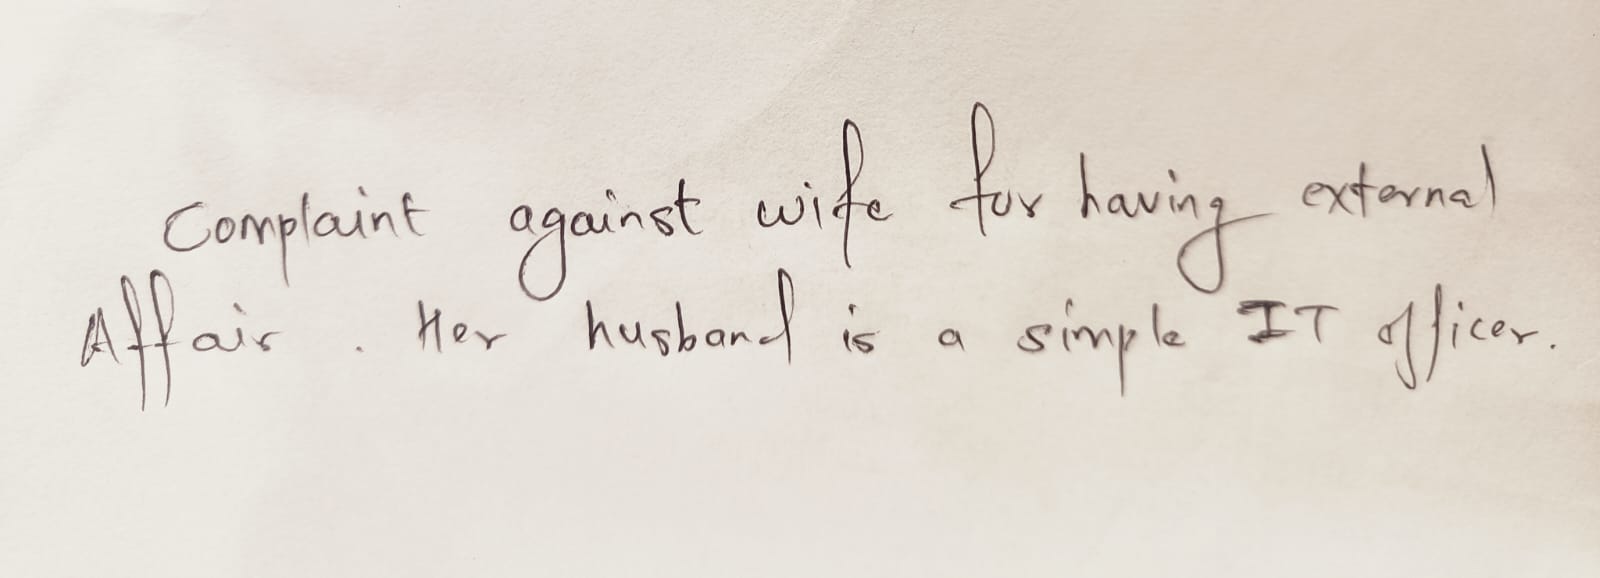 Complaint against wife for having external
Affair. Her husband is a simple IT officer.